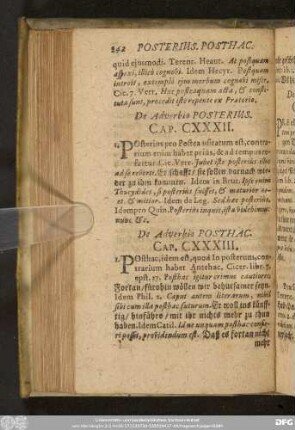 242 POSTERIUS. POSTHAC.
quid ejusmodi. Terent. Heaut. At postquam
aspexi, illico cognovi. Idem Hecyr. Postquam
introii, extemplo ejus morbum cognovi miser,
Cic. 7. Verr. Hæc postquam acta, & consti-
tuta sunt, procedit iste repente ex Prætorio.
De Adverbio POSTERIUS.
CAP. CXXXII.
1. POsterius pro Postea usitatum est, contra-
rium enim habet prius, & ad temp
fertur. Cic. Verr. Jubet iste posterius
ad se referri, Er schafft sie sollen darnach wie-
der zu ihm kommen. Idem in Brut. Ipse enim
Thucydides, si posterius fuisset, & maturior
& mitior. Idem de Leg. Sed hæc posterius.
Idem pro Quin. Posterius inquit, ista
De Adverbio POSTHAC.
CAP. CXXXIII.
1. POsthac, idem est, quod In posterum, con-
trarium habet Antehac. Cicer. lib. 7.
epist. 17. Posthac igitur erimus cautiores
Fortan / forthin wöllen wir behutsamer seyn.
Idem Phil. 2. Caput autem literarum,
sibi cum illa posthac futurum. Er woll
tig / hinfüro / mit ihr nichts mehr zu thun
haben. Idem Catil. Id ne unquam posthac
posset, providendum est. Daß es fortan nicht
nicht